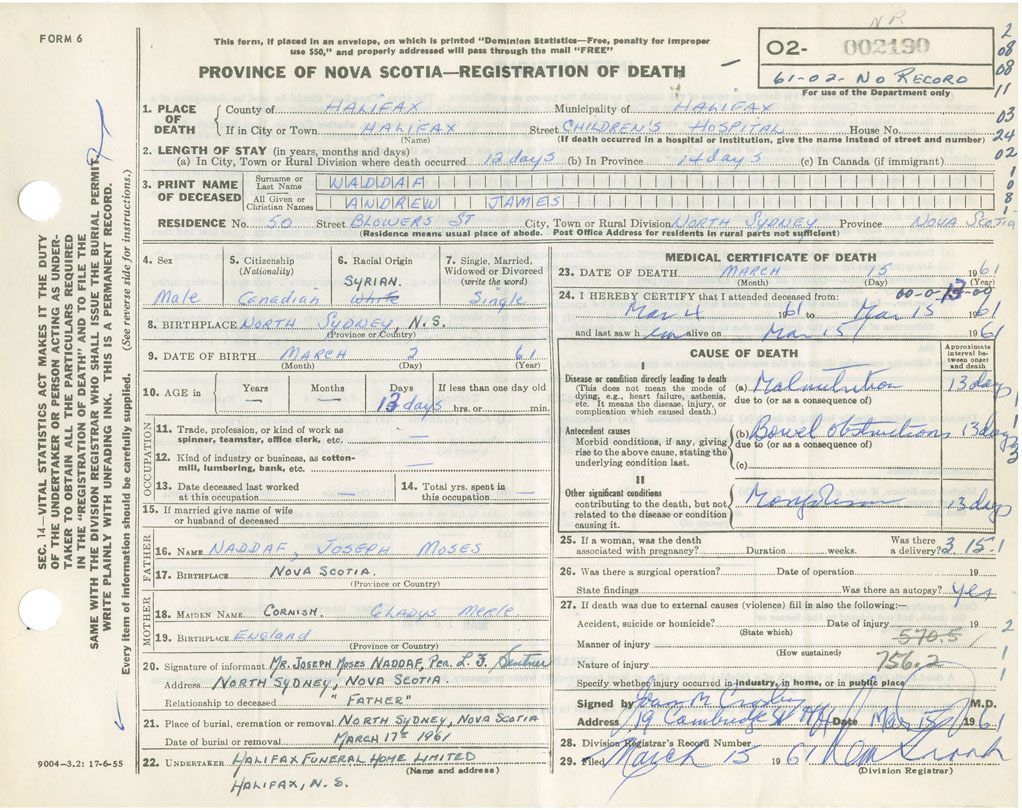 NR
FORM 6
This form, if placed in an envelope, on which is printed "Dominion Statistics—Free, penalty for improper
use $50," and properly addressed will pass through the mail "FREE"
O2- 002190
61-02- NO RECORD
For use of the Department only
PROVINCE OF NOVA SCOTIA—REGISTRATION OF DEATH
2
08
08
11
03
24
02
1
0
8
1
1. PLACE OF DEATH
County of HALIFAX Municipality of HALIFAX
If in City or Town HALIFAX Street CHILDREN'S HOSPITAL House No.
(Name) (If death occurred in a hospital or institution, give the name instead of street and number)
2. LENGTH OF STAY (in years, months and days)
(a) In City, Town or Rural Division where death occurred 12 days (b) In Province 14 days (c) In Canada (if immigrant)
3. PRINT NAME OF DECEASED
Surname or Last Name WADDAF
All Given or Christian Names ANDREW JAMES
RESIDENCE No. 50 Street BLOWERS ST City, Town or Rural Division NORTH SYDNEY Province NOVA SCOTIA
(Residence means usual place of abode. Post Office Address for residents in rural parts not sufficient)
4. Sex
Male
5. Citizenship
(Nationality)
Canadian
6. Racial Origin
SYRIAN.
White
7. Single, Married,
Widowed or Divorced
(write the word)
Single
8. BIRTHPLACE NORTH SYDNEY, N.S.
(Province or Country)
9. DATE OF BIRTH MARCH 2 61
(Month) (Day) (Year)
10. AGE in
Years
—
Months
—
Days
13 days
If less than one day old
hrs. or min.
OCCUPATION
11. Trade, profession, or kind of work as
spinner, teamster, office clerk, etc. —
12. Kind of industry or business, as cotton-
mill, lumbering, bank, etc. —
13. Date deceased last worked
at this occupation —
14. Total yrs. spent in
this occupation —
15. If married give name of wife
or husband of deceased
FATHER
16. NAME NADDAF, JOSEPH MOSES
17. BIRTHPLACE NOVA SCOTIA.
(Province or Country)
MOTHER
18. MAIDEN NAME CORNISH. GLADYS MERLE
19. BIRTHPLACE England
(Province or Country)
20. Signature of informant MR. JOSEPH MOSES NADDAF, PER. L.J.
Address NORTH SYDNEY, NOVA SCOTIA.
Relationship to deceased "FATHER"
21. Place of burial, cremation or removal NORTH SYDNEY, NOVA SCOTIA
Date of burial or removal MARCH 17th 1961
22. UNDERTAKER HALIFAX FUNERAL HOME LIMITED
(Name and address)
HALIFAX, N.S.
9004—3.2: 17-6-55
MEDICAL CERTIFICATE OF DEATH
23. DATE OF DEATH MARCH 15 1961
(Month) (Day) (Year)
24. I HEREBY CERTIFY that I attended deceased from: 00-0-13-09
Mar 4 1961 to Mar 15 1961
and last saw him alive on Mar 15 1961
CAUSE OF DEATH
Approximate
interval be-
tween onset
and death
I
Disease or condition directly leading to death
(This does not mean the mode of
dying, e.g., heart failure, asthenia,
etc. It means the disease, injury, or
complication which caused death.)
(a) Malnutrition 13 days
due to (or as a consequence of)
Antecedent causes
Morbid conditions, if any, giving
rise to the above cause, stating the
underlying condition last.
(b) Bowel obstructions 13 days
due to (or as a consequence of)
(c)
II
Other significant conditions
contributing to the death, but not
related to the disease or condition
causing it.
Mongolism 13 days
25. If a woman, was the death
associated with pregnancy? Duration weeks. Was there
a delivery? 3.15.1
26. Was there a surgical operation? Date of operation 19
State findings Was there an autopsy? Yes
27. If death was due to external causes (violence) fill in also the following:—
Accident, suicide or homicide? Date of injury 19
(State which)
570.5
Manner of injury
(How sustained)
756.2
Nature of injury
Specify whether injury occurred in industry, in home, or in public place
Signed by M.D.
Address 19 Cambridge St Hfx Date Mar 15 1961
28. Division Registrar's Record Number
29. Filed March 15 1961
(Division Registrar)
SEC. 14—VITAL STATISTICS ACT MAKES IT THE DUTY
OF THE UNDERTAKER OR PERSON ACTING AS UNDER-
TAKER TO OBTAIN ALL THE PARTICULARS REQUIRED
IN THE "REGISTRATION OF DEATH" AND TO FILE THE
SAME WITH THE DIVISION REGISTRAR WHO SHALL ISSUE THE BURIAL PERMIT.
WRITE PLAINLY WITH UNFADING INK. THIS IS A PERMANENT RECORD.
Every item of information should be carefully supplied. (See reverse side for instructions.)